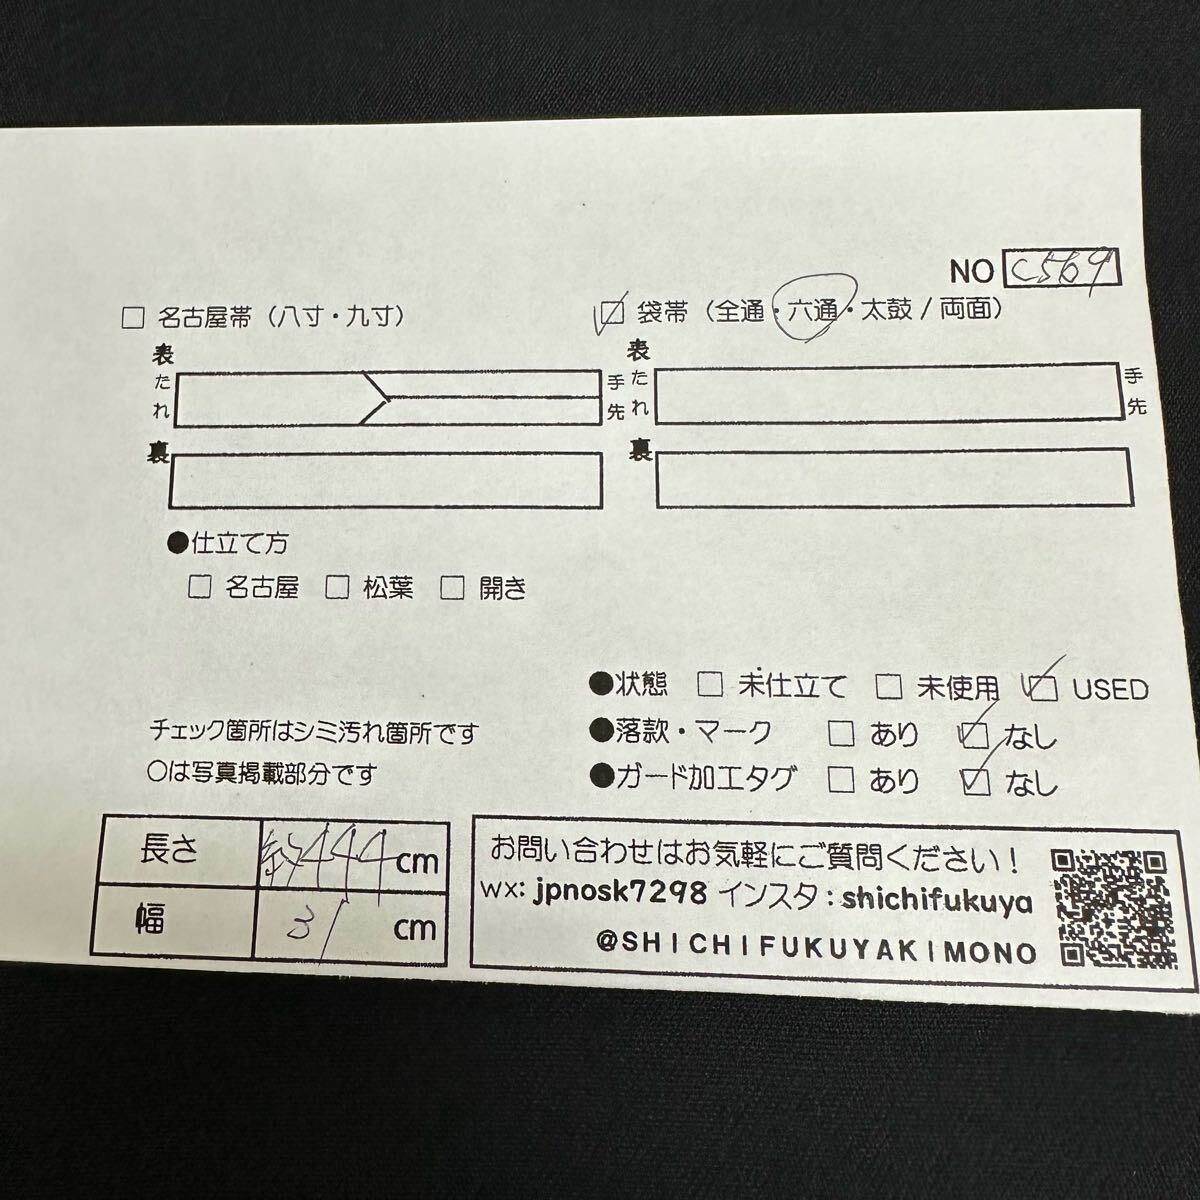 NO C569
□ 名古屋帯（八寸・九寸）
☑ 袋帯（全通・六通・太鼓/両面）
表
たれ
手先
裏
表
たれ
手先
裏
●仕立て方
□ 名古屋 □ 松葉 □ 開き
●状態 □ 未仕立て □ 未使用 ☑ USED
●落款・マーク □ あり ☑ なし
●ガード加工タグ □ あり ☑ なし
チェック箇所はシミ汚れ箇所です
○は写真掲載部分です
長さ 約444cm
幅 31 cm
お問い合わせはお気軽にご質問ください！
wx: jpnosk7298 インスタ：shichifukuya
@SHICHIFUKUYAKIMONO